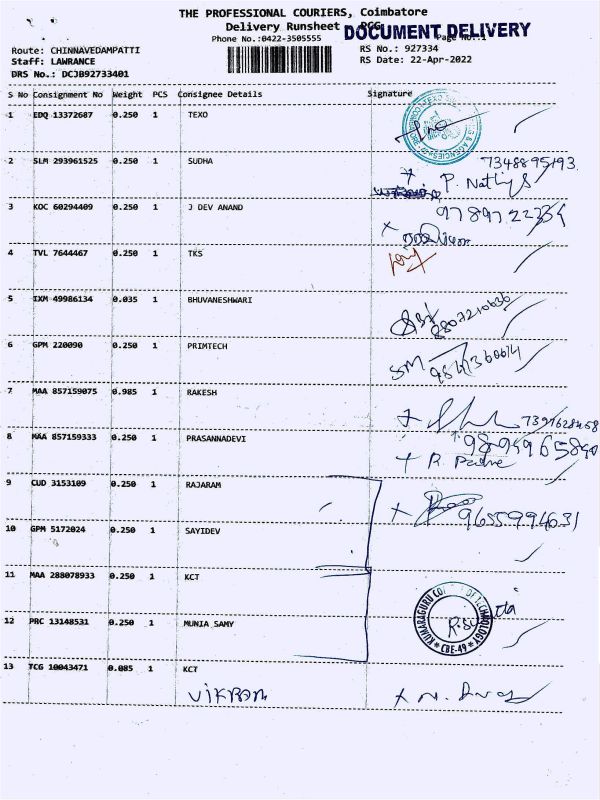 THE PROFESSIONAL COURIERS, Coimbatore
Delivery Runsheet
DOCUMENT DELIVERY
Phone No.:0422-3505555
Page No.:1
Route: CHINNAVEDAMPATTI
RS No.: 927334
Staff: LAWRANCE
RS Date: 22-Apr-2022
DRS No.: DCJB92733401
S No Consignment No Weight PCS Consignee Details Signature
1 EDQ 13372687 0.250 1 TEXO
2 SLM 293961525 0.250 1 SUDHA 7348895193
3 KOC 60294409 0.250 1 J DEV ANAND 9789722334
4 TVL 7644467 0.250 1 TKS
5 IXM 49986134 0.035 1 BHUVANESHWARI
6 GPM 220090 0.250 1 PRIMTECH
SM
7 MAA 857159075 0.985 1 RAKESH
8 MAA 857159333 0.250 1 PRASANNADEVI
9 CUD 3153109 0.250 1 RAJARAM
9655994031
10 GPM 5172024 0.250 1 SAYIDEV
11 MAA 288078933 0.250 1 KCT
KUMARAGURU COLLEGE OF TECHNOLOGY
* CBE-49 *
12 PRC 13148531 0.250 1 MUNIA SAMY
13 TCG 10043471 0.085 1 KCT
VIKRAM